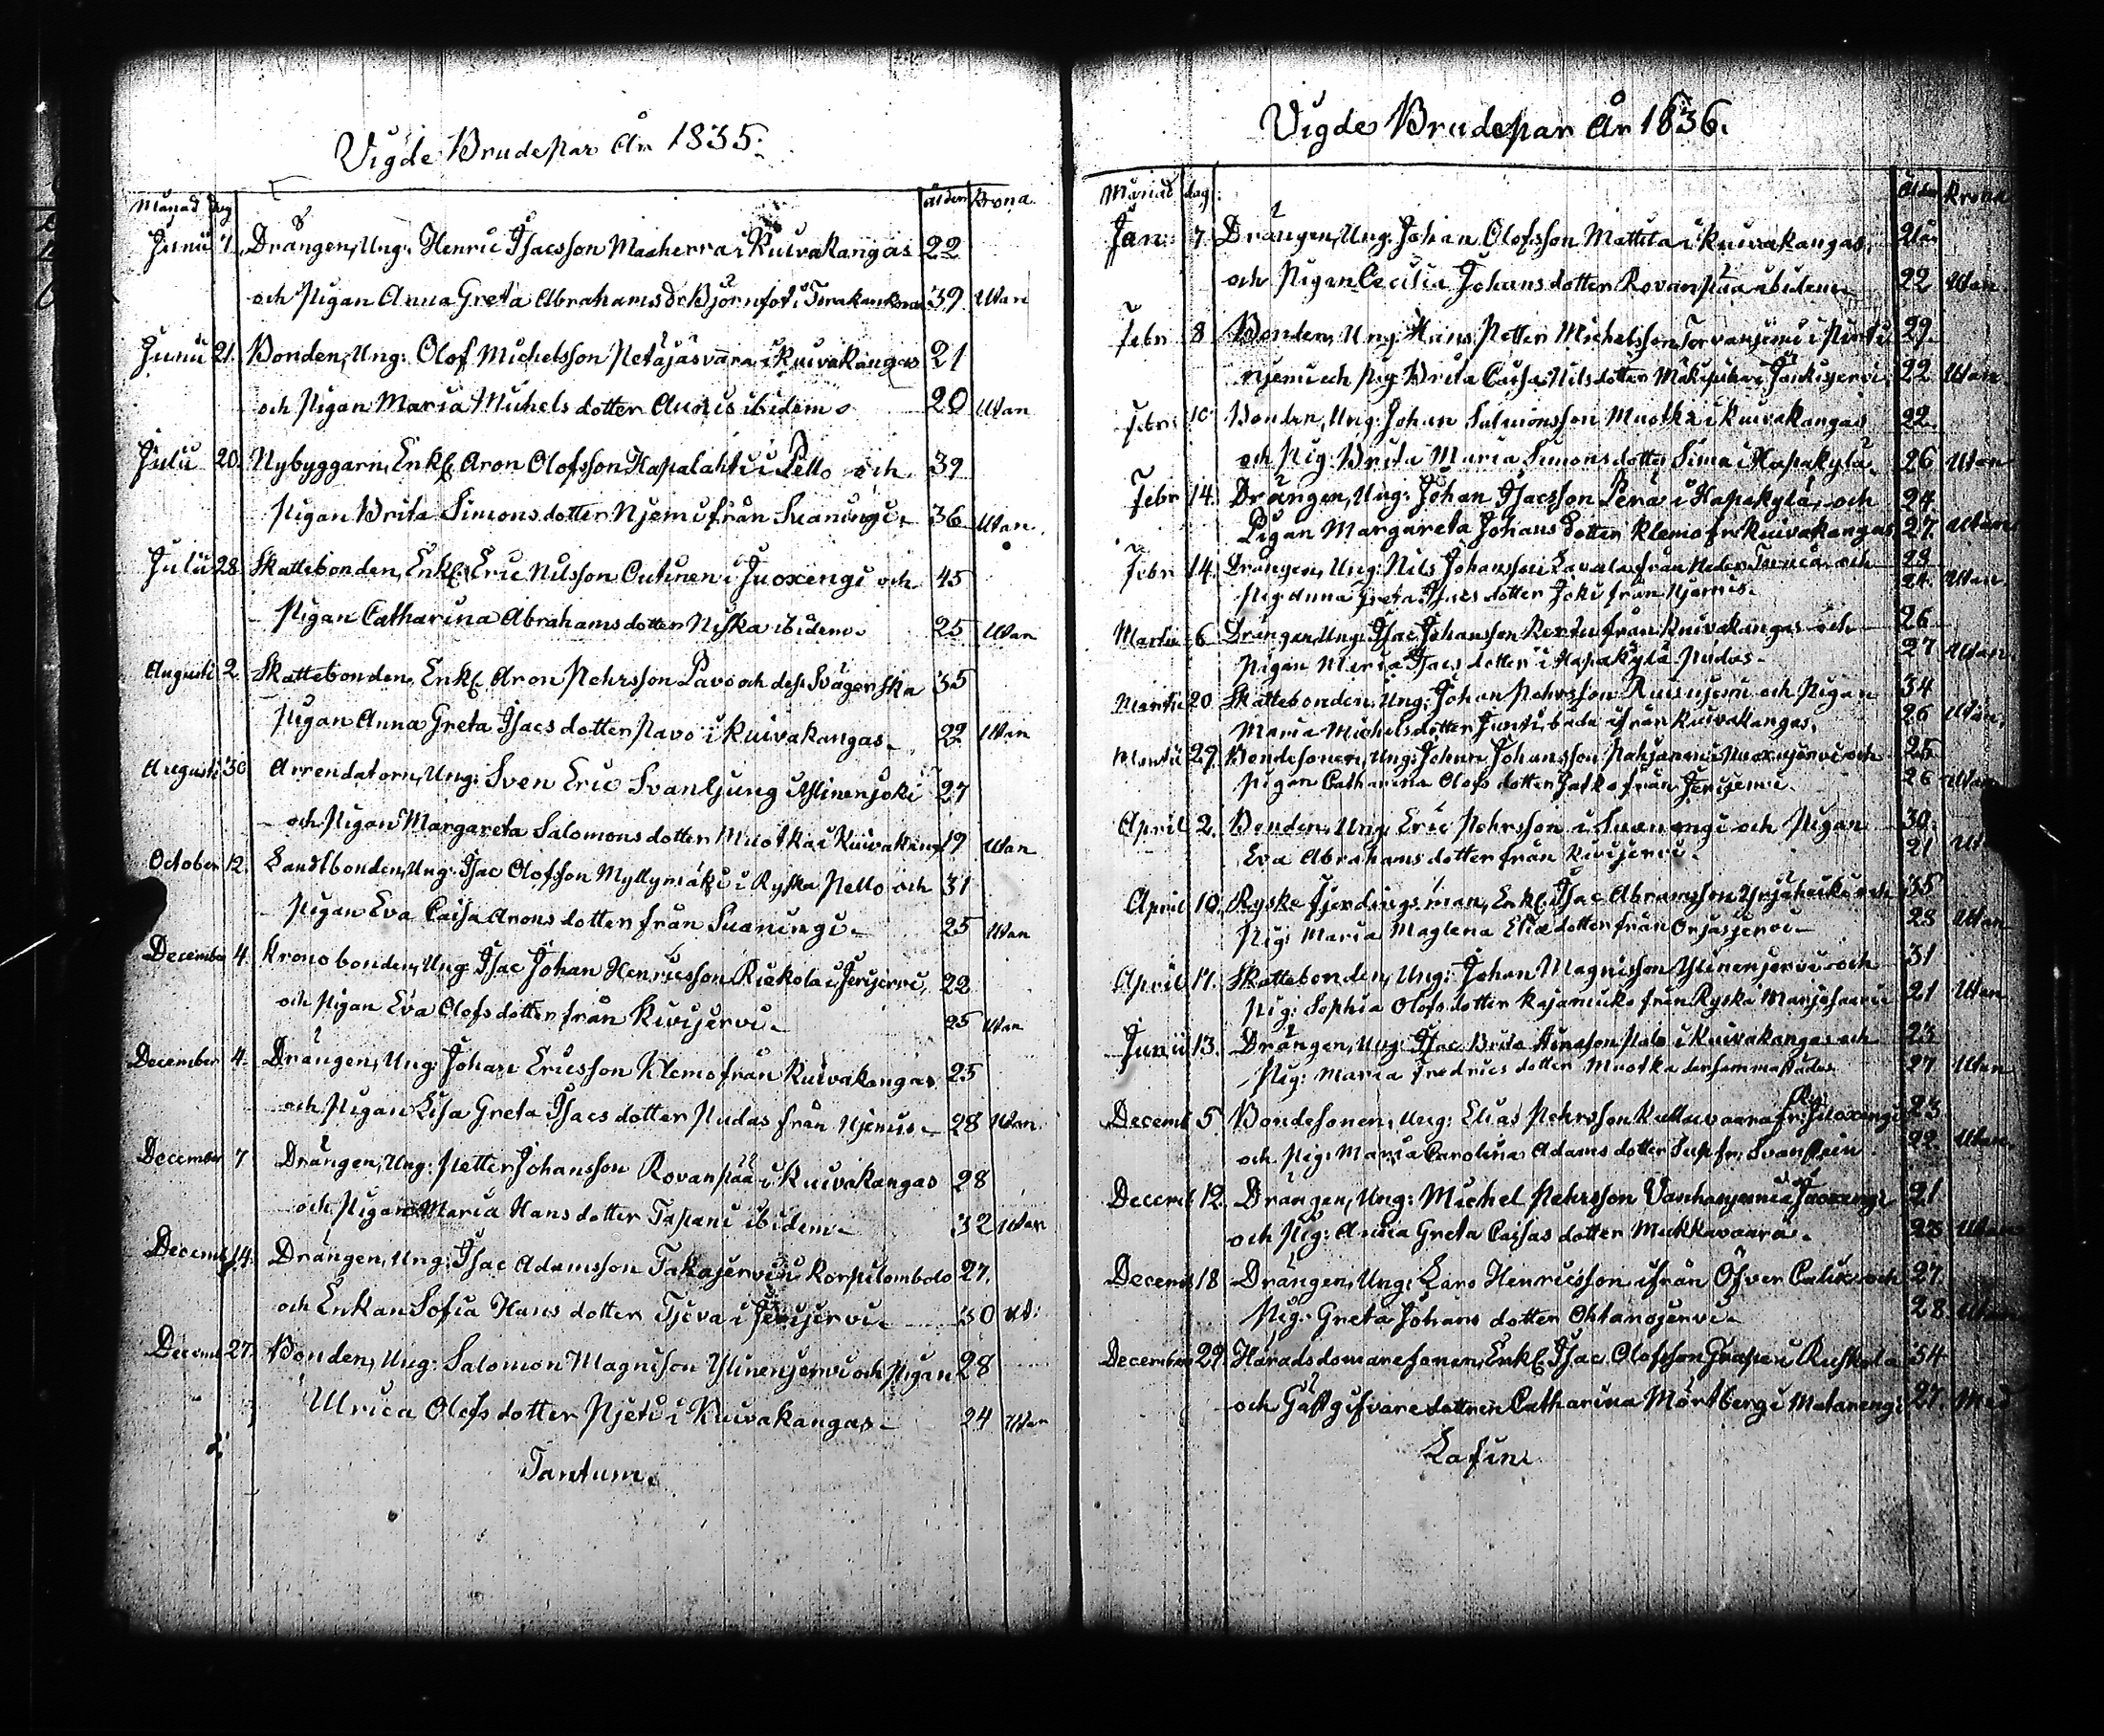 Vigde Brudepar År 1835.
Månad dag ålder Krona
Junii 7. Drängen, Ung: Henric Isacsson Maaherra i Kuivakangas 22
och Pigan Anna Greta Abrahams dr Björnfot i 39 Utan
Junii 21. Bonden, Ung: Olof Michelsson Petäjäsvara i Kuivakangas 21
och Pigan Maria Michels dotter Aunis ibidem 20 Utan
Julii 20. Nybyggarn, Enkl. Aron Olofsson Hapalahti i Pello och 39
Pigan Brita Simons dotter Njemi från Svaningi 36 Utan
Julii 28. Skattebonden, Enkl: Eric Nilsson Outinen i Juoxengi och 45
Pigan Catharina Abrahams dotter Niska ibidem 25 Utan
Augusti 2. Skattebonden, Enkl. Aron Pehrsson Pavo och dess Svägerska 35
Pigan Anna Greta Isacs dotter Pavo i Kuivakangas 22 Utan
Augusti 30 Arrendatorn, Ung: Sven Eric Svanljung Ylinenjoki 27
och Pigan Margareta Salomons dotter Muotka i Kuivakang 19 Utan
October 12. Landtbonden, Ung: Isac Olofsson Myllymäki i Ryska Pello och 31
Pigan Eva Caisa Arons dotter från Svaningi 25 Utan
December 4. Kronobonden, Ung: Isac Johan Henricsson Riekola i Jerijervi, 22
och Pigan Eva Olofs dotter från Kivijervi 25 Utan
December 4. Drängen, Ung: Johan Ericsson Klemo från Kuivakangas 25
och Pigan Lisa Greta Isacs dotter Pudas från Njemis 28 Utan
December 7 Drängen, Ung: Petter Johansson Rovanpää i Kuivakangas 28
och Pigan Maria Hans dotter Tapani ibidem 32 Utan
Decemb 14. Drängen, Ung: Isac Adamsson Takajervi i Korpilombolo 27.
och Enkan Sofia Hans dotter Tjeva i Jerijervi 30 Ut:
Decemb 27. Bonden, Ung: Salomon Magnison Ylinenjervi och Pigan 28
Ulrica Olofs dotter Pjeti i Kuivakangas 24 Utan
Tantum
Vigde Brudepar År 1836.
Månad dag: Ålder Krona
Jan: 7. Drängen, Ung. Johan Olofsson Mattila i Kuivakangas,
och Pigan Cecilia Johans dotter Rovanpää ibidem 22 Utan
Febr 8 Bonden, Ung: Hans Petter Michelsson i 29.
njemi och Pig: Brita Caisa Nils dotter 22 Utan
Febr: 10 Bonden, Ung: Johan Salmonsson Muotka i Kuivakangas 22
och Pig: Brita Maria Simons dotter Sima i Hapakylä 26 Utan
Febr 14. Drängen, Ung: Johan Isacsson Perä i Hapakylä, och 24
Pigan Margareta Johans dotter Klemo fr Kuivakangas 27. Utan
Febr 14. Drängen, Ung: Nils Johansson Lavala från Neder Tornea och 23
Pig: Anna Greta Isacs dotter Joki från Njemis. 24. Utan
Martii 6 Drängen, Ung: Isac Johansson från Kuivakangas och 26
Pigan Maria Isacs dotter i Hapakylä Pudas 27 Utan
Martii 20 Skattebonden, Ung: Johan Pehrsson och Pigan 34
Maria Michels dotter Junti båda ifrån Kuivakangas. 26 Utan
Martii 29. Bondesonen, Ung: Johan Johansson och 25
Pigan Catharina Olofs dotter Jatko från Jerijervi. 26 Utan
April 2. Bonden, Ung Eric Pehrsson i Svanengi och Pigan 30.
Eva Abrahams dotter från Kivijervi. 21
April 10. Ryske Fjerdingsman, Enkl. Isac Abramsson och 35
Pig: Maria Maglena Elias dotter från Orjasjervi 28 Utan
April 17. Skattebonden, Ung: Johan Magnisson Ylinenjervi och 31
Pig: Sophia Olofs dotter Kajaniuko från Ryska Marjosaari 21 Utan
Junii 13. Drängen, Ung: Isac Brita Palo i Kuivakangas och 23
Pig: Maria Fredrics dotter Muotka dersammastädes 27 Utan
Decemb 5. Bondesonen, Ung: Elias Pehrsson Kuttuvaara fr: Ry: Juoxengi 23
och Pig: Maria Carolina Adams dotter fr: Svanstein 22. Utan
Decemb 12. Drängen, Ung: Michel Pehrsson i Juoxengi 21
och Pig: Anna Greta Caisas dotter Mukkavaara.
Decemb 18 Drängen, Ung: Lars Henricsson ifrån Öfver Calix och 27.
Pig: Greta Johans dotter Ohtanajervi 28.
December 29. Häradsdomaresonen, Enkl. Isac Olofsson Grape i Ruskola 34
och Gästgifvaredottren Catharina Mörtberg i Matarengi 27. Med
Lafin